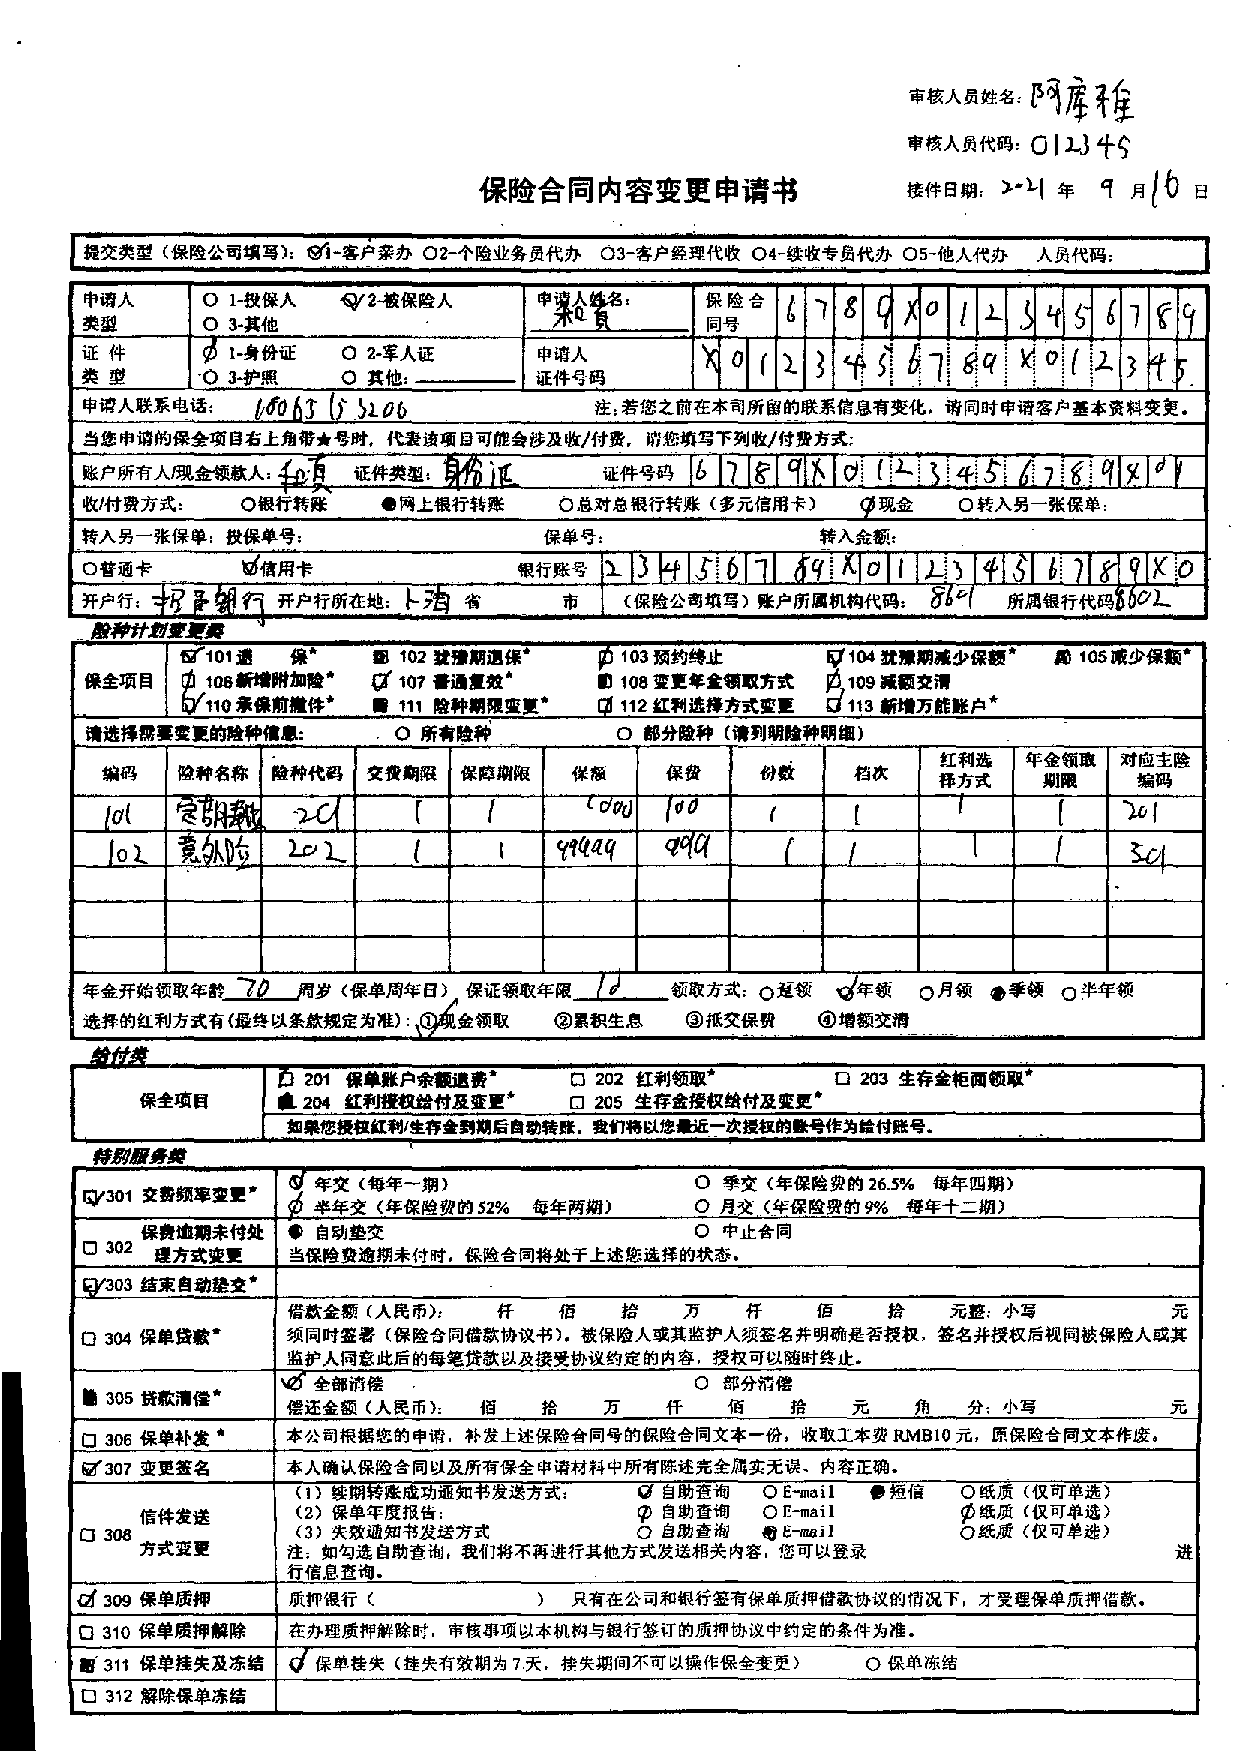 审核人员姓名：阿库雅
审核人员代码：012345
保险合同内容变更申请书
接件日期：2021年9月16日
提交类型（保险公司填写）：1-客户亲办 2-个险业务员代办 3-客户经理代收 4-续收专员代办 5-他人代办 人员代码：
申请人类型 1-投保人 2-被保险人 3-其他 申请人姓名： 保险合同号 6789X0123456789
证件类型 1-身份证 2-军人证 3-护照 其他： 申请人证件号码 X0123456789X012345
申请人联系电话：18063153206 注：若您之前在本司所留的联系信息有变化，请同时申请客户基本资料变更。
当您申请的保全项目右上角带★号时，代表该项目可能会涉及收/付费，请您填写下列收/付费方式：
账户所有人/现金领款人： 证件类型：身份证 证件号码 6789X0123456789X01
收/付费方式： 银行转账 网上银行转账 总对总银行转账（多元信用卡） 现金 转入另一张保单：
转入另一张保单：投保单号： 保单号： 转入金额：
普通卡 信用卡 银行账号 23456789X0123456789X0
开户行：招商银行 开户行所在地：上海省 市 （保险公司填写）账户所属机构代码：8601 所属银行代码8602
险种计划变更类
保全项目
101 退 保* 102 犹豫期退保* 103 预约终止 104 犹豫期减少保额* 105 减少保额*
106 新增附加险* 107 普通复效* 108 变更年金领取方式 109 减额交清
110 承保前撤件* 111 险种期限变更* 112 红利选择方式变更 113 新增万能账户*
请选择需要变更的险种信息： 所有险种 部分险种（请列明险种明细）
编码 险种名称 险种代码 交费期限 保障期限 保额 保费 份数 档次 红利选择方式 年金领取期限 对应主险编码
101 201 1 1 1000 100 1 1 1 1 201
102 意外险 202 1 1 99999 999 1 1 1 1 301
年金开始领取年龄 70 周岁（保单周年日）保证领取年限 10 领取方式： 趸领 年领 月领 季领 半年领
选择的红利方式有（最终以条款规定为准）：①现金领取 ②累积生息 ③抵交保费 ④增额交清
给付类
保全项目
201 保单账户余额退费* 202 红利领取* 203 生存金柜面领取*
204 红利授权给付及变更* 205 生存金授权给付及变更*
如果您授权红利/生存金到期后自动转账，我们将以您最近一次授权的账号作为给付账号。
特别服务类
301 交费频率变更* 年交（每年一期） 季交（年保险费的26.5% 每年四期）
半年交（年保险费的52% 每年两期） 月交（年保险费的9% 每年十二期）
302 保费逾期未付处理方式变更 自动垫交 中止合同
当保险费逾期未付时，保险合同将处于上述您选择的状态。
303 结束自动垫交*
304 保单贷款* 借款金额（人民币）： 仟 佰 拾 万 仟 佰 拾 元整：小写 元
须同时签署（保险合同借款协议书）。被保险人或其监护人须签名并明确是否授权，签名并授权后视同被保险人或其
监护人同意此后的每笔贷款以及接受协议约定的内容，授权可以随时终止。
305 贷款清偿* 全部清偿 部分清偿
偿还金额（人民币）： 佰 拾 万 仟 佰 拾 元 角 分：小写 元
306 保单补发* 本公司根据您的申请，补发上述保险合同号的保险合同文本一份，收取工本费RMB10元，原保险合同文本作废。
307 变更签名 本人确认保险合同以及所有保全申请材料中所有陈述完全属实无误、内容正确。
308 信件发送方式变更 （1）续期转账成功通知书发送方式： 自助查询 E-mail 短信 纸质（仅可单选）
（2）保单年度报告： 自助查询 E-mail 纸质（仅可单选）
（3）失效通知书发送方式 自助查询 E-mail 纸质（仅可单选）
注：如勾选自助查询，我们将不再进行其他方式发送相关内容，您可以登录 进
行信息查询。
309 保单质押 质押银行（ ） 只有在公司和银行签有保单质押借款协议的情况下，才受理保单质押借款。
310 保单质押解除 在办理质押解除时，审核事项以本机构与银行签订的质押协议中约定的条件为准。
311 保单挂失及冻结 保单挂失（挂失有效期为7天，挂失期间不可以操作保全变更） 保单冻结
312 解除保单冻结